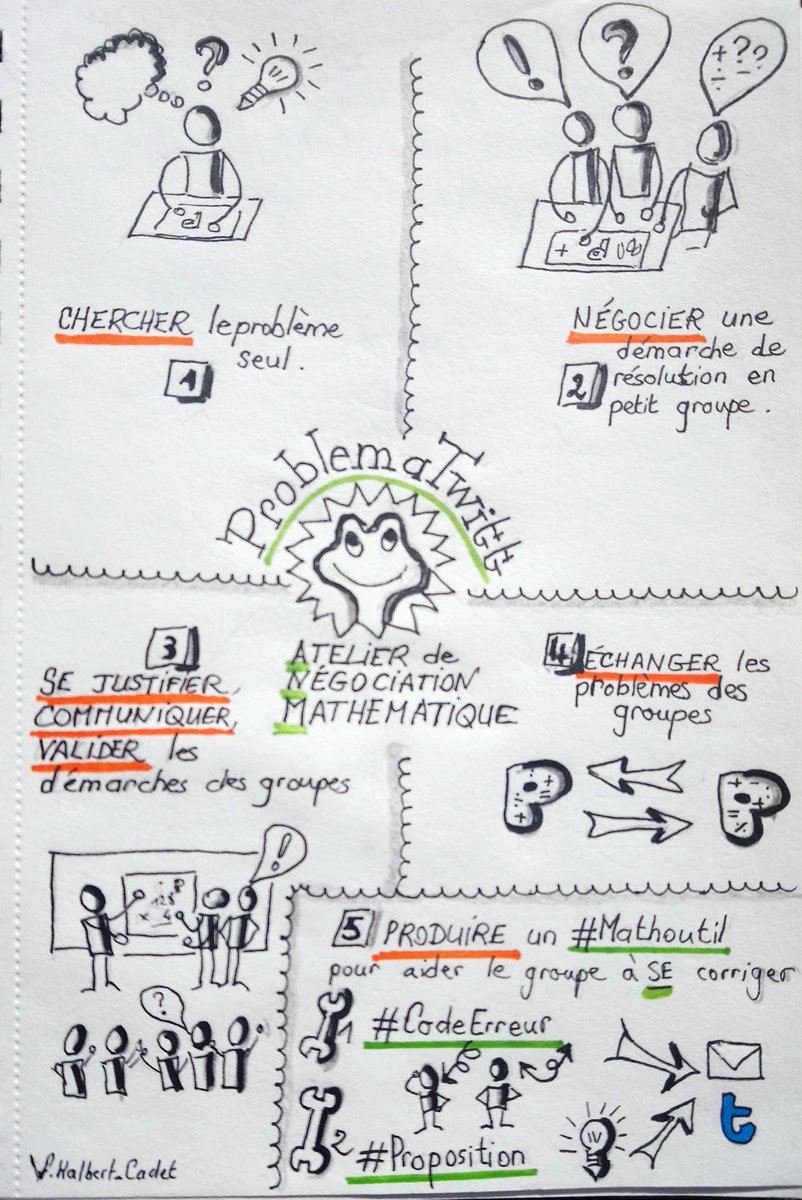 !
?
?
+??
÷
CHERCHER le problème
seul.
1
NÉGOCIER une
démarche de
2
résolution en
petit groupe.
ProblemaTwitt
3
SE JUSTIFIER,
COMMUNIQUER,
VALIDER les
démarches des groupes
ATELIER de
NÉGOCIATION
MATHEMATIQUE
4
ÉCHANGER les
problèmes des
groupes
!
128
?
5 PRODUIRE un #Mathoutil
pour aider le groupe à SE corriger
1 #CodeErreur
2 #Proposition
t